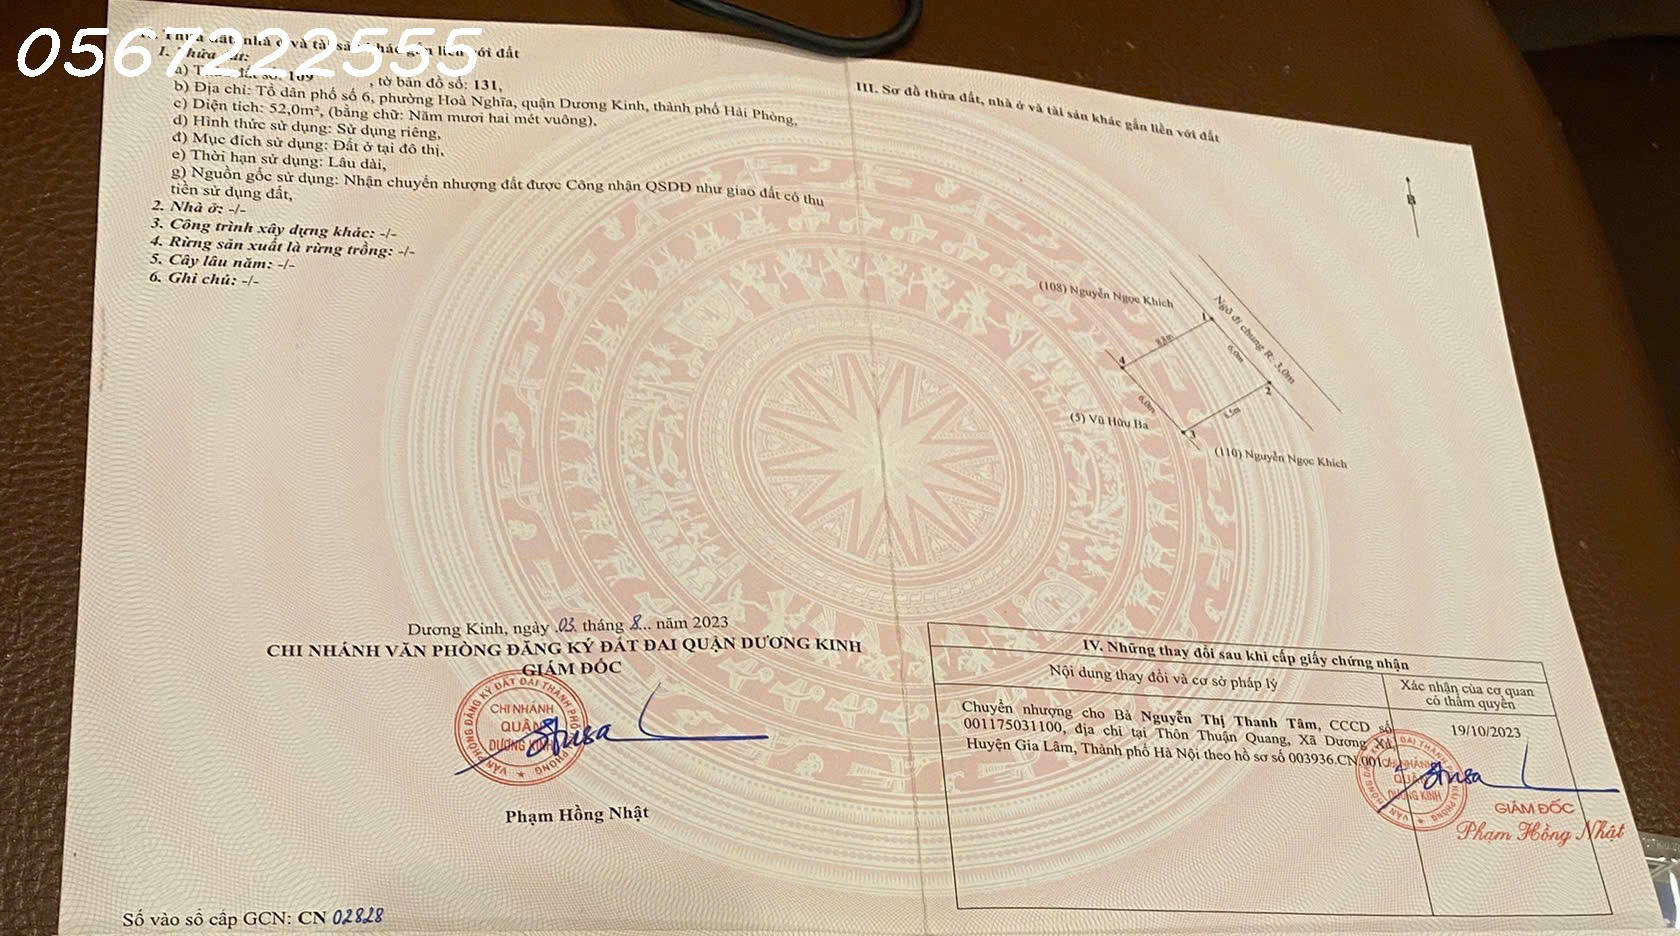 0567222555
Thửa đất, nhà ở và tài sản khác gắn liền với đất
1. Thửa đất:
a) Thửa đất số: 109 , tờ bản đồ số: 131,
b) Địa chỉ: Tổ dân phố số 6, phường Hoà Nghĩa, quận Dương Kinh, thành phố Hải Phòng,
c) Diện tích: 52,0m², (bằng chữ: Năm mươi hai mét vuông),
d) Hình thức sử dụng: Sử dụng riêng,
đ) Mục đích sử dụng: Đất ở tại đô thị,
e) Thời hạn sử dụng: Lâu dài,
g) Nguồn gốc sử dụng: Nhận chuyển nhượng đất được Công nhận QSDĐ như giao đất có thu
tiền sử dụng đất,
2. Nhà ở: -/-
3. Công trình xây dựng khác: -/-
4. Rừng sản xuất là rừng trồng: -/-
5. Cây lâu năm: -/-
6. Ghi chú: -/-
Dương Kinh, ngày 03 tháng 8 năm 2023
CHI NHÁNH VĂN PHÒNG ĐĂNG KÝ ĐẤT ĐAI QUẬN DƯƠNG KINH
GIÁM ĐỐC
VĂN PHÒNG ĐĂNG KÝ ĐẤT ĐAI THÀNH PHỐ HẢI PHÒNG
CHI NHÁNH
QUẬN
DƯƠNG KINH
Phạm Hồng Nhật
Số vào sổ cấp GCN: CN 02828
III. Sơ đồ thửa đất, nhà ở và tài sản khác gắn liền với đất
B
(108) Nguyễn Ngọc Khích
Ngõ đi chung R: 3,0m
1
6,0m
4
2
6,0m
8,5m
3
(5) Vũ Hữu Ba
(110) Nguyễn Ngọc Khích
IV. Những thay đổi sau khi cấp giấy chứng nhận
Nội dung thay đổi và cơ sở pháp lý
Xác nhận của cơ quan
có thẩm quyền
Chuyển nhượng cho Bà Nguyễn Thị Thanh Tâm, CCCD số
001175031100, địa chỉ tại Thôn Thuận Quang, Xã Dương Xá,
Huyện Gia Lâm, Thành phố Hà Nội theo hồ sơ số 003936.CN.001
19/10/2023
CHI NHÁNH
QUẬN
DƯƠNG KINH
GIÁM ĐỐC
Phạm Hồng Nhật